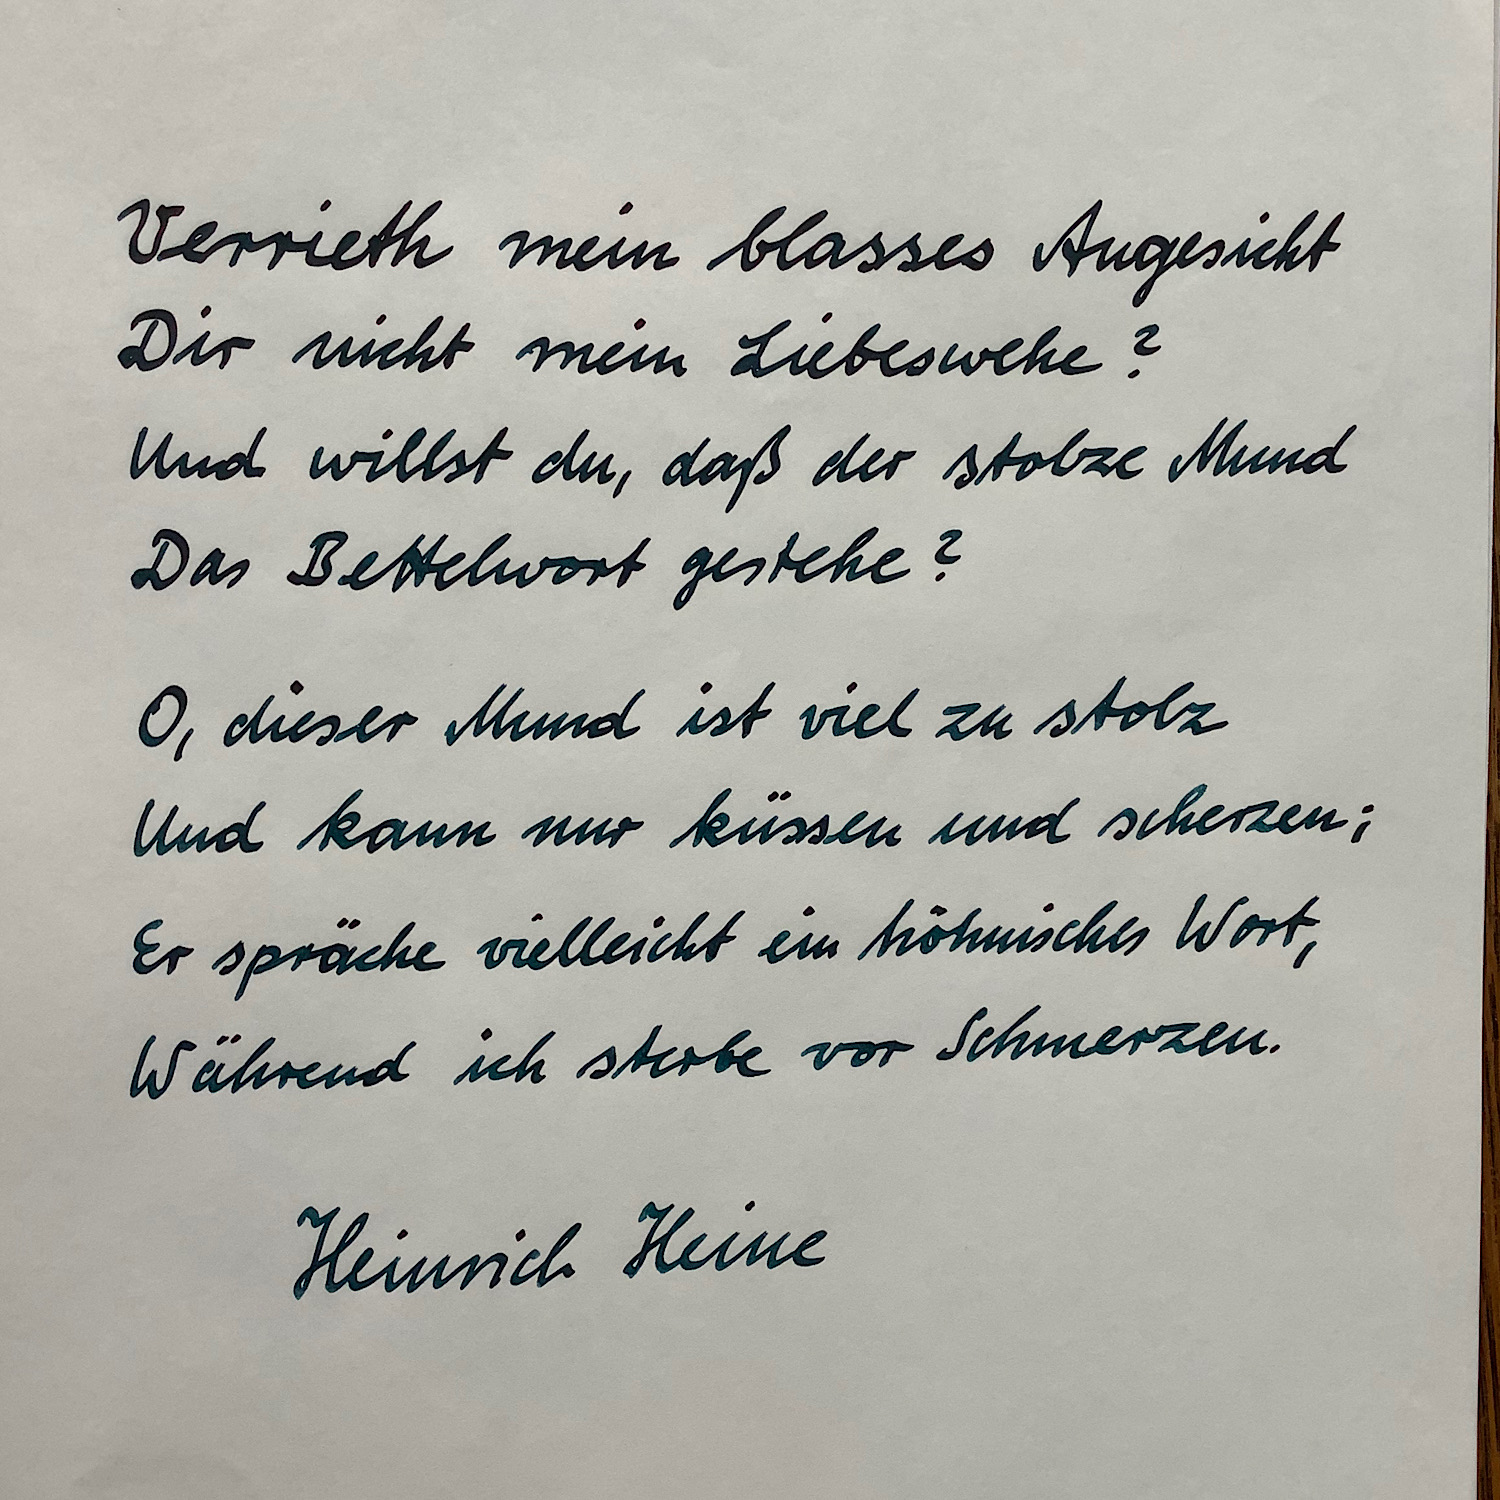 Verrieth mein blasses Angesicht
Dir nicht mein Liebeswehe?
Und willst du, daß der stolze Mund
Das Bettelwort gestehe?
O, dieser Mund ist viel zu stolz
Und kann nur küssen und scherzen;
Er spräche vielleicht ein höhnisches Wort,
Während ich sterbe vor Schmerzen.
Heinrich Heine